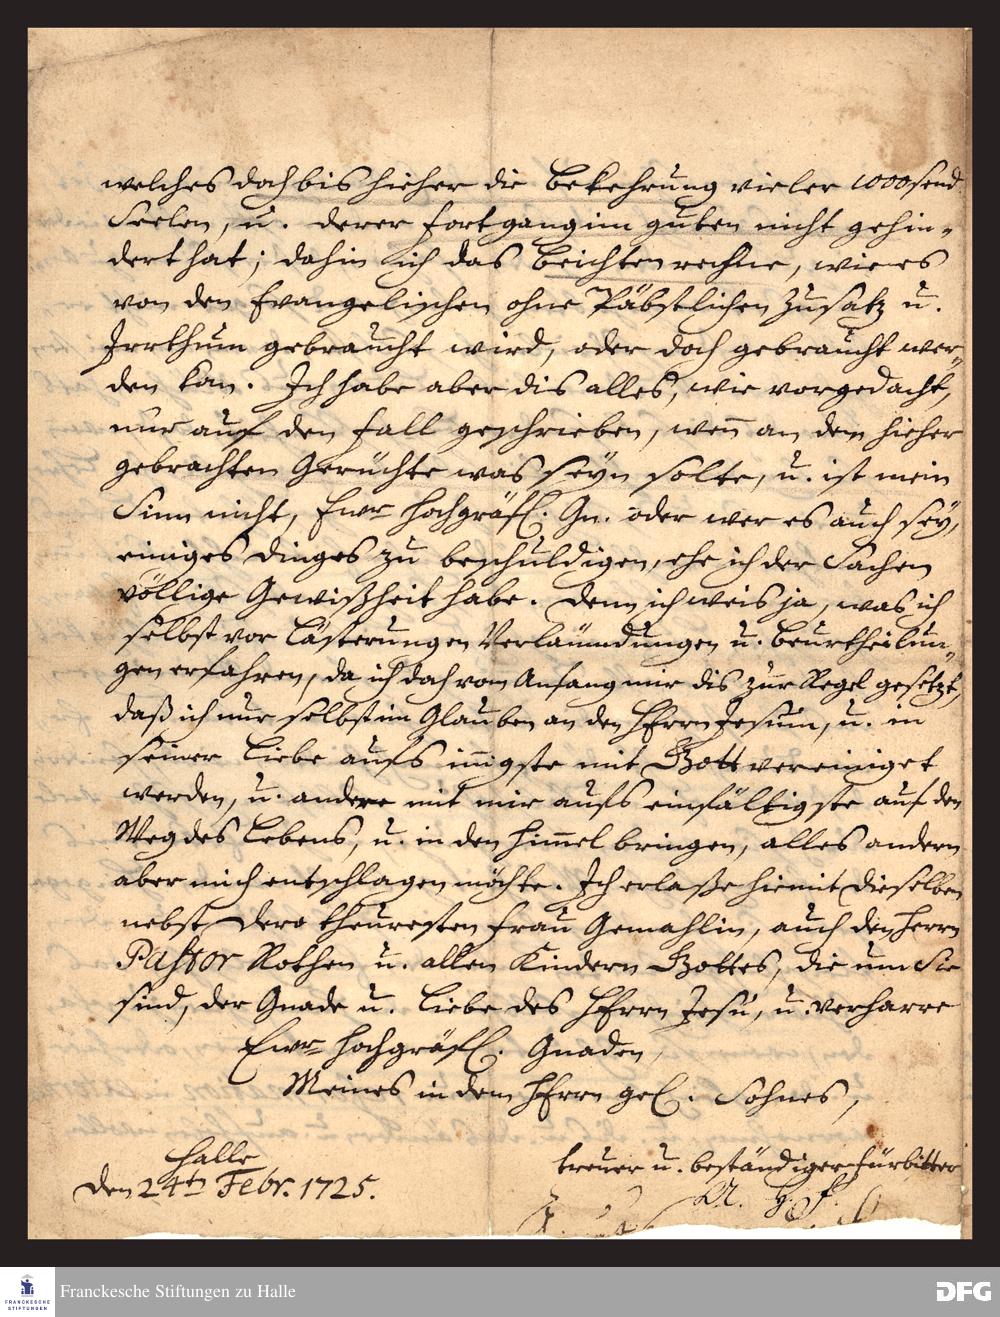 welches doch bis hieher die Bekehrung vieler 1000send
Seelen, u. derer fortgang im guten nicht gehin„
dert hat; dahin ich das Beichten rechne, wie es
von den Evangelischen ohne Päbstlichen Zusatz u.
Irrthum gebraucht wird, oder doch gebraucht wer„
den kan. Ich habe aber dis alles, wie vorgedacht,
nur auf den fall geschrieben, wen̄ an dem hieher
gebrachten Gerüchte was seyn solte, u. ist mein
Sinn nicht, Ewr Hochgräfl. Gn. oder wer es auch sey,
einiges dinges zu beschuldigen, ehe ich der Sachen
völlige Gewißheit habe. Denn ich weis ja, was ich
selbst vor Lästerungen Verläumdungen u. Beurtheilun„
gen erfahren, da ich doch vom Anfang mir dis zur Regel gesetzt,
daß ich nur selbst im Glauben an den HErrn Jesum, u. in
seiner Liebe aufs innigste mit Gott vereiniget
werden, u. andere mit mir aufs einfältigste auf den
Weg des Lebens, u. in den Himmel bringen, alles andern
aber mich entschlagen möchte. Ich erlaße hiemit dieselben
nebst Dero theuresten Frau Gemahlin, auch den Herrn
Pastor Rothen u. allen Kindern Gottes, die um Sie
sind, der Gnade u. Liebe des HErrn Jesu, u. verharre
Ewr Hochgräfl. Gnaden,
Meines in dem HErrn gel. Sohnes,
Halle
den 24ten Febr. 1725.
treuer u. beständiger fürbitter
A. H. F.
Franckesche Stiftungen zu Halle
FRANCKESCHE
STIFTUNGEN
DFG